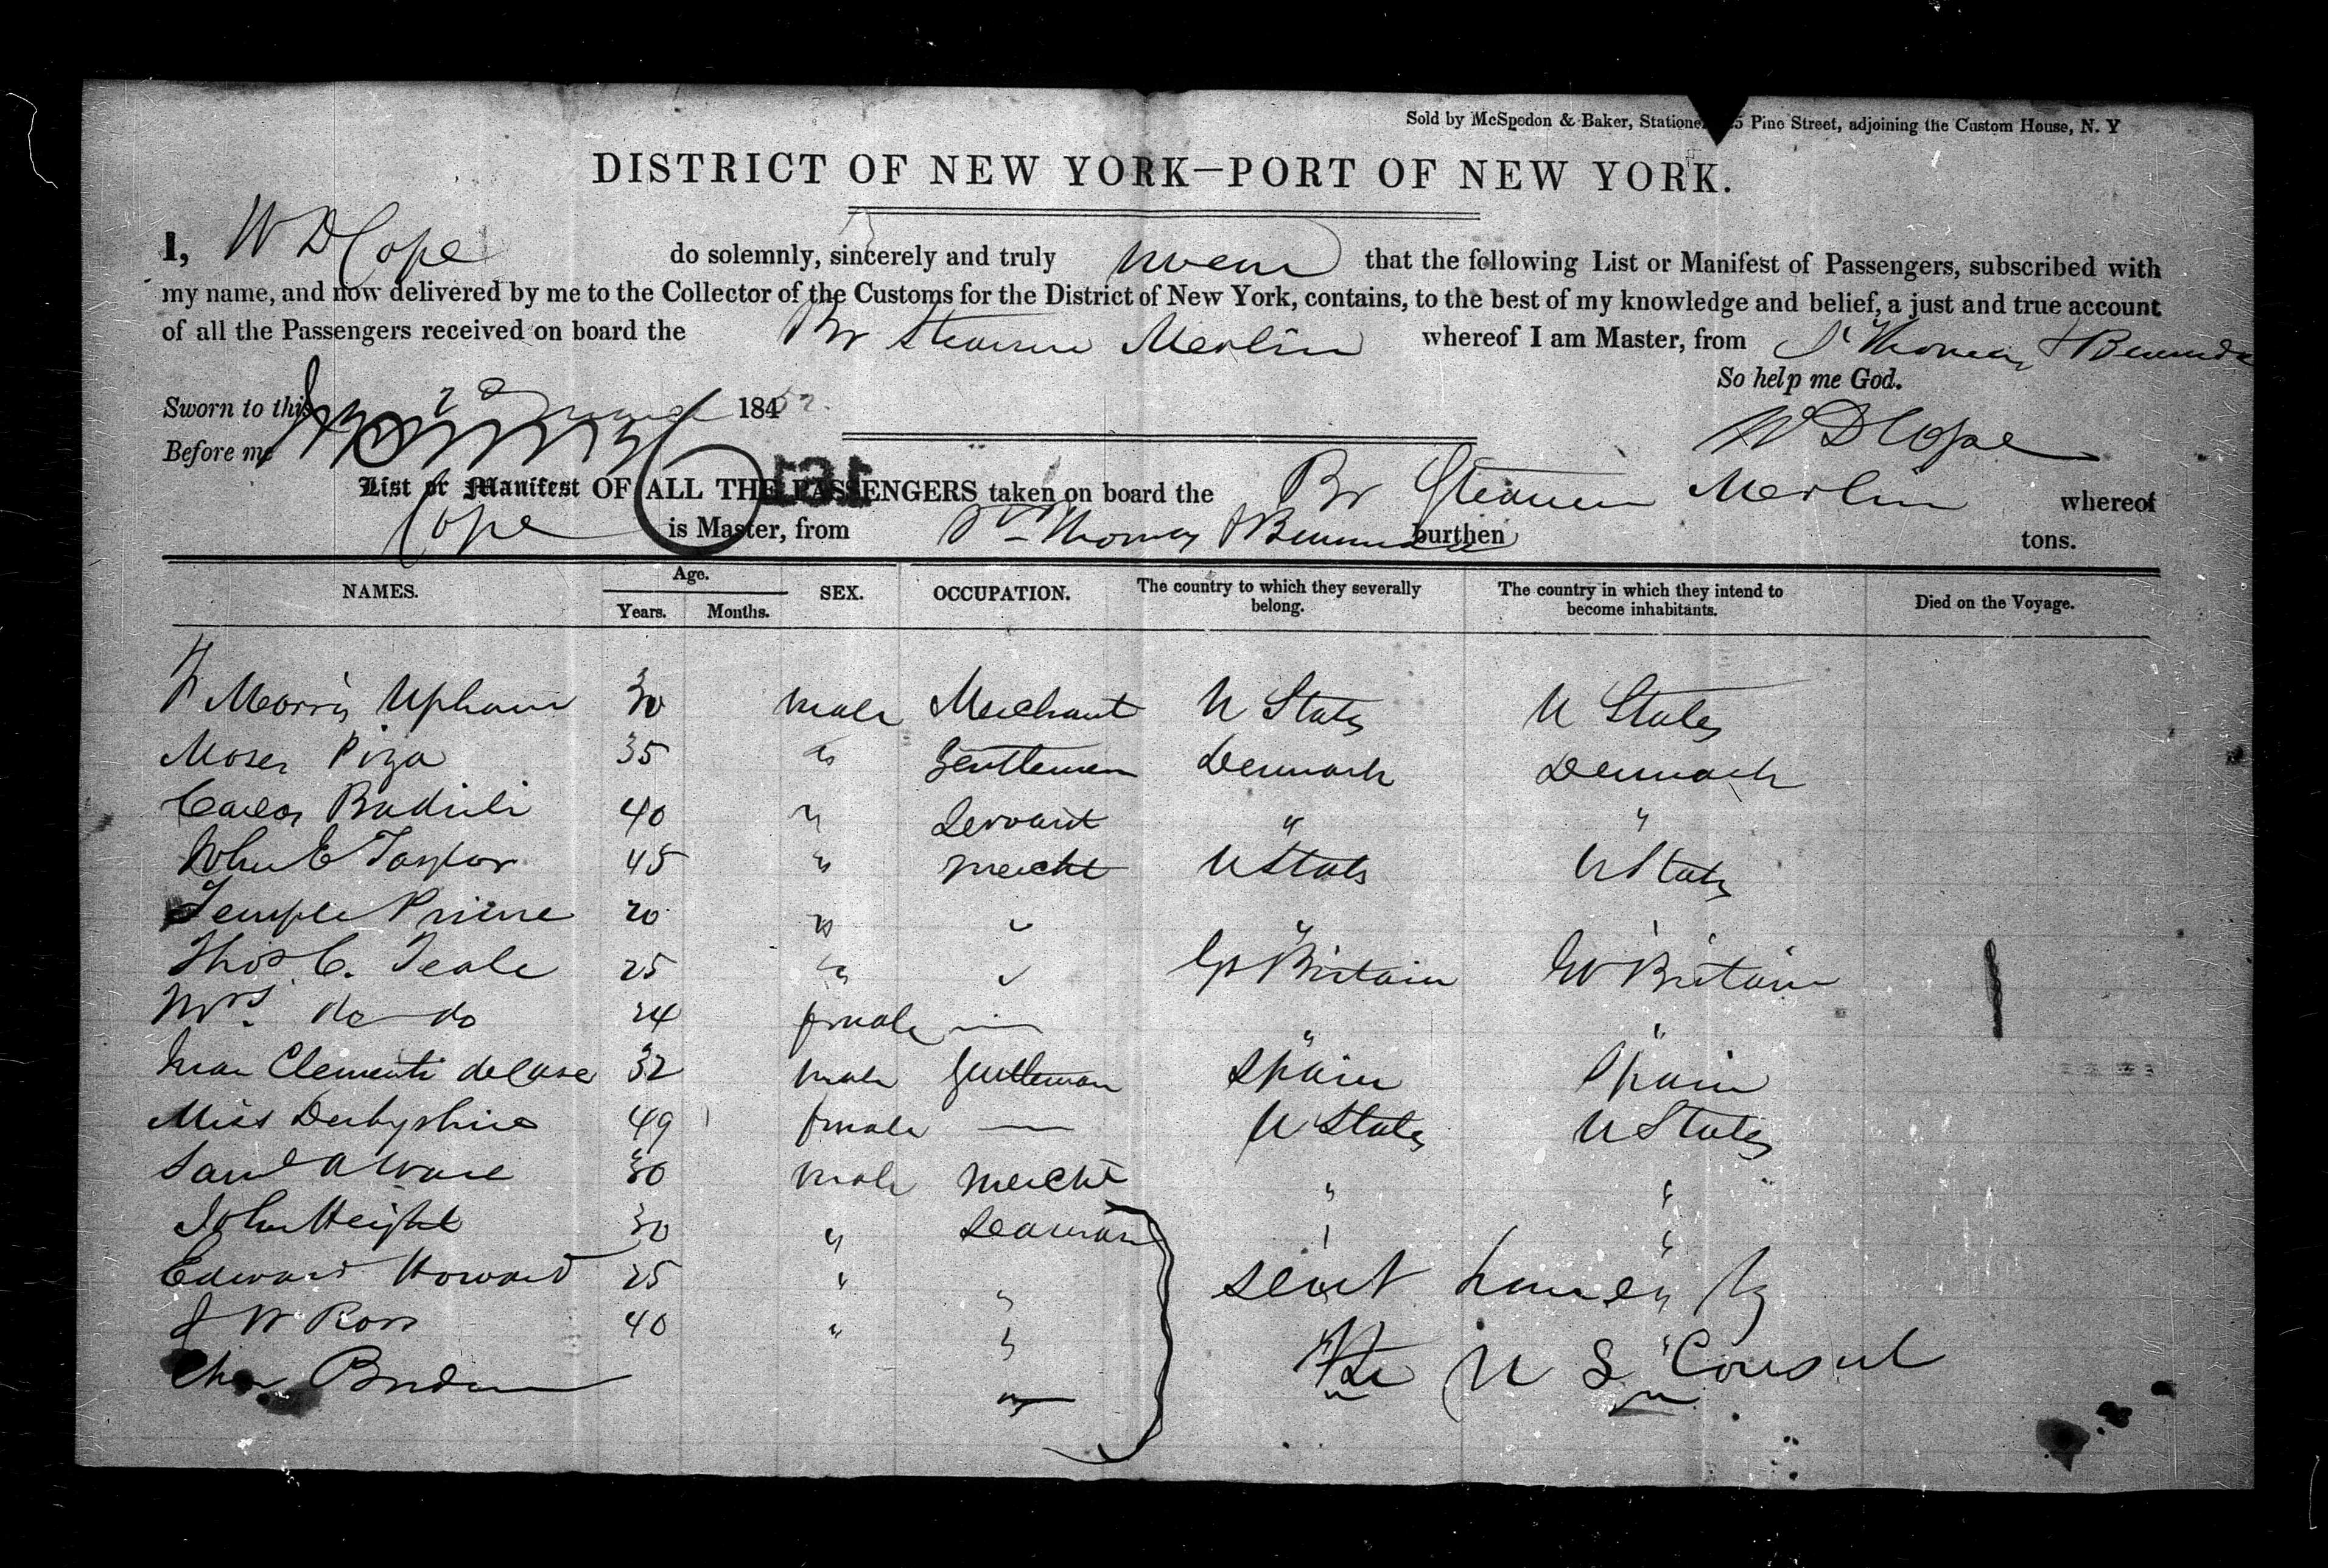 Sold by McSpedon & Baker, Stationers, 25 Pine Street, adjoining the Custom House, N. Y
DISTRICT OF NEW YORK—PORT OF NEW YORK.
I, W D Cope do solemnly, sincerely and truly swear that the following List or Manifest of Passengers, subscribed with
my name, and now delivered by me to the Collector of the Customs for the District of New York, contains, to the best of my knowledge and belief, a just and true account
of all the Passengers received on board the Br Steamer Merlin whereof I am Master, from St Thomas & Bermuda
So help me God.
Sworn to this 22 184 52.
W D Cope
Before me
131
List or Manifest OF ALL THE PASSENGERS taken on board the Br Steamer Merlin whereof
Cope is Master, from St Thomas & Bermuda burthen tons.
NAMES. Age. Years. Months. SEX. OCCUPATION. The country to which they severally belong. The country in which they intend to become inhabitants. Died on the Voyage.
Morris Upham 30 male Merchant U States U States
Moses Piza 35 do Gentleman Denmark Denmark
Carlos 40 " Servant " "
John E Taylor 45 " mercht U States U States
Temple Prime 20 " " " "
Thos C. Teale 25 " " Gt Britain Gt Britain
Mrs. do do 24 female — " "
Juan Clementi delCase 32 male Gentleman Spain Spain
Miss Derbyshire 49 female — U States U States
Saml A Ware 30 male mercht " "
John Height 30 " Seaman " "
Edward Howard 25 " " sent home by
J W Ross 40 " " the U S Consul
Chas "